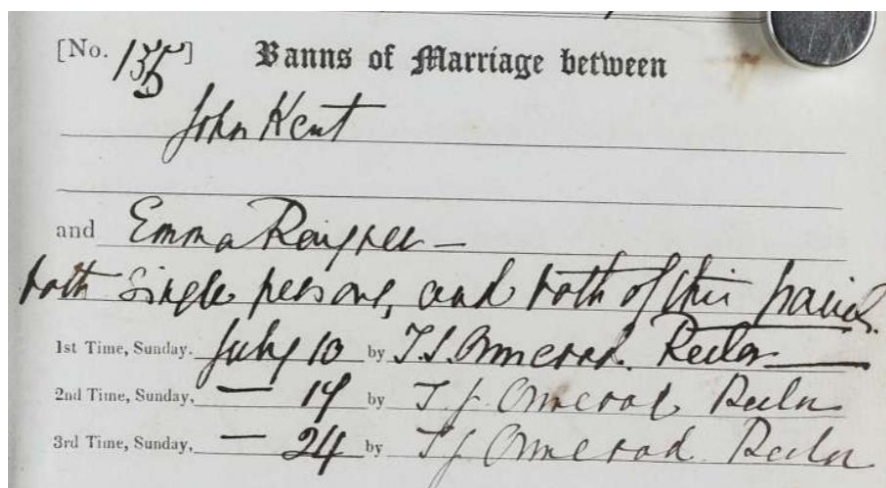 [No. 135] Banns of Marriage between
John Kent
and Emma
both single persons, and both of this parish.
1st Time, Sunday. July 10 by T. J. Ormerod. Rector
2nd Time, Sunday, — 17 by T J Ormerod Rector
3rd Time, Sunday, — 24 by T J Ormerod Rector